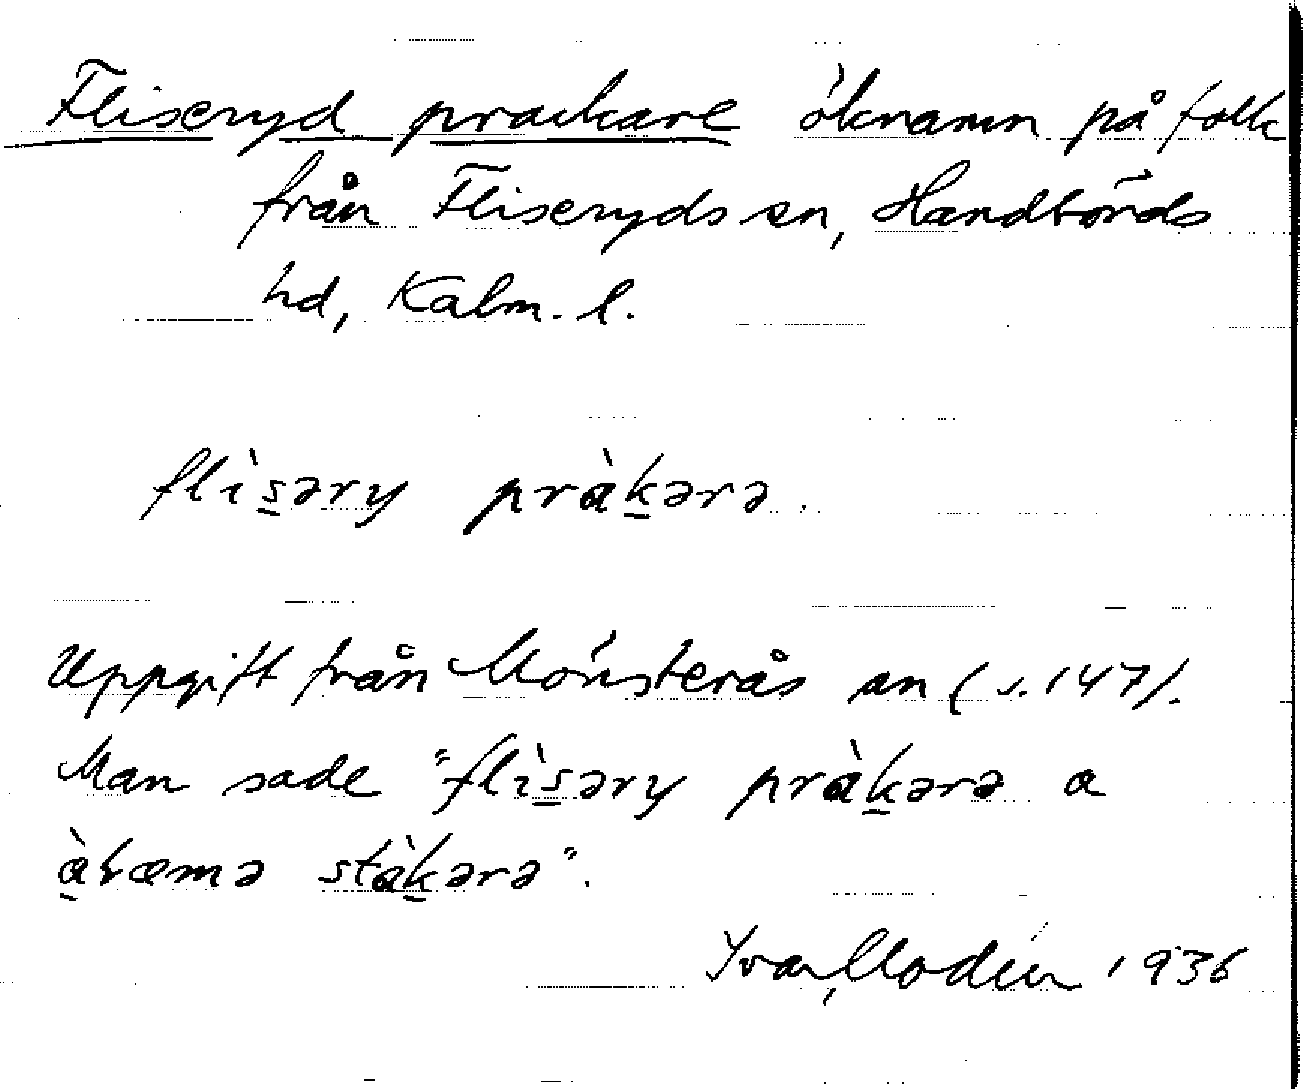 Fliseryd prackare öknamn på folk
från Fliseryds sn, Handbörds
hd, Kalm. l.
flìs̲əry pràk̲ərə.
Uppgift från Mönsterås sn (s. 147).
Man sade "flìs̲əry pràk̲ərə a
à̲bæmə stàk̲ərə".
Ivar Modéer 1936